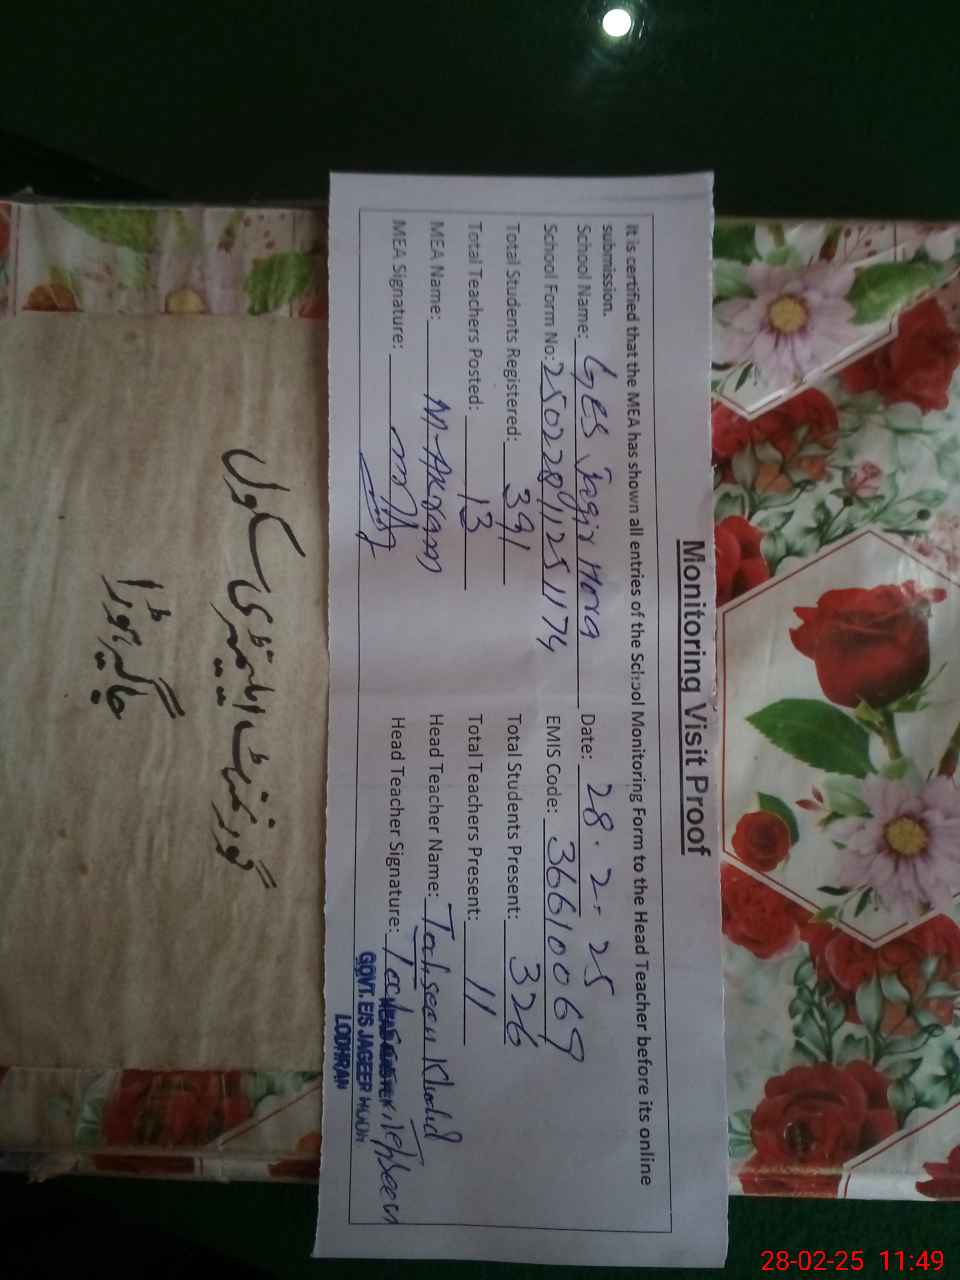 Monitoring Visit Proof
It is certified that the MEA has shown all entries of the School Monitoring Form to the Head Teacher before its online
submission.
School Name: GES Jagir Hora Date: 28.2.25
School Form No: 2502289112511174 EMIS Code: 36610069
Total Students Registered: 391 Total Students Present: 326
Total Teachers Posted: 13 Total Teachers Present: 11
MEA Name: M-Akram Head Teacher Name: Tahseen Khalid
MEA Signature: Head Teacher Signature: Tahseen
HEAD MASTER
GOVT. E/S JAGEER HOORA
LODHRAN
گورنمنٹ ایلیمنٹری سکول
جاگیر ہوڑا
28-02-25 11:49